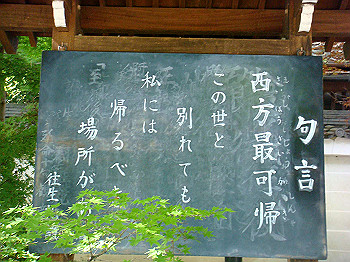 句言
西方最可帰
この世と
別れても
私には
帰るべ
場所が
往生